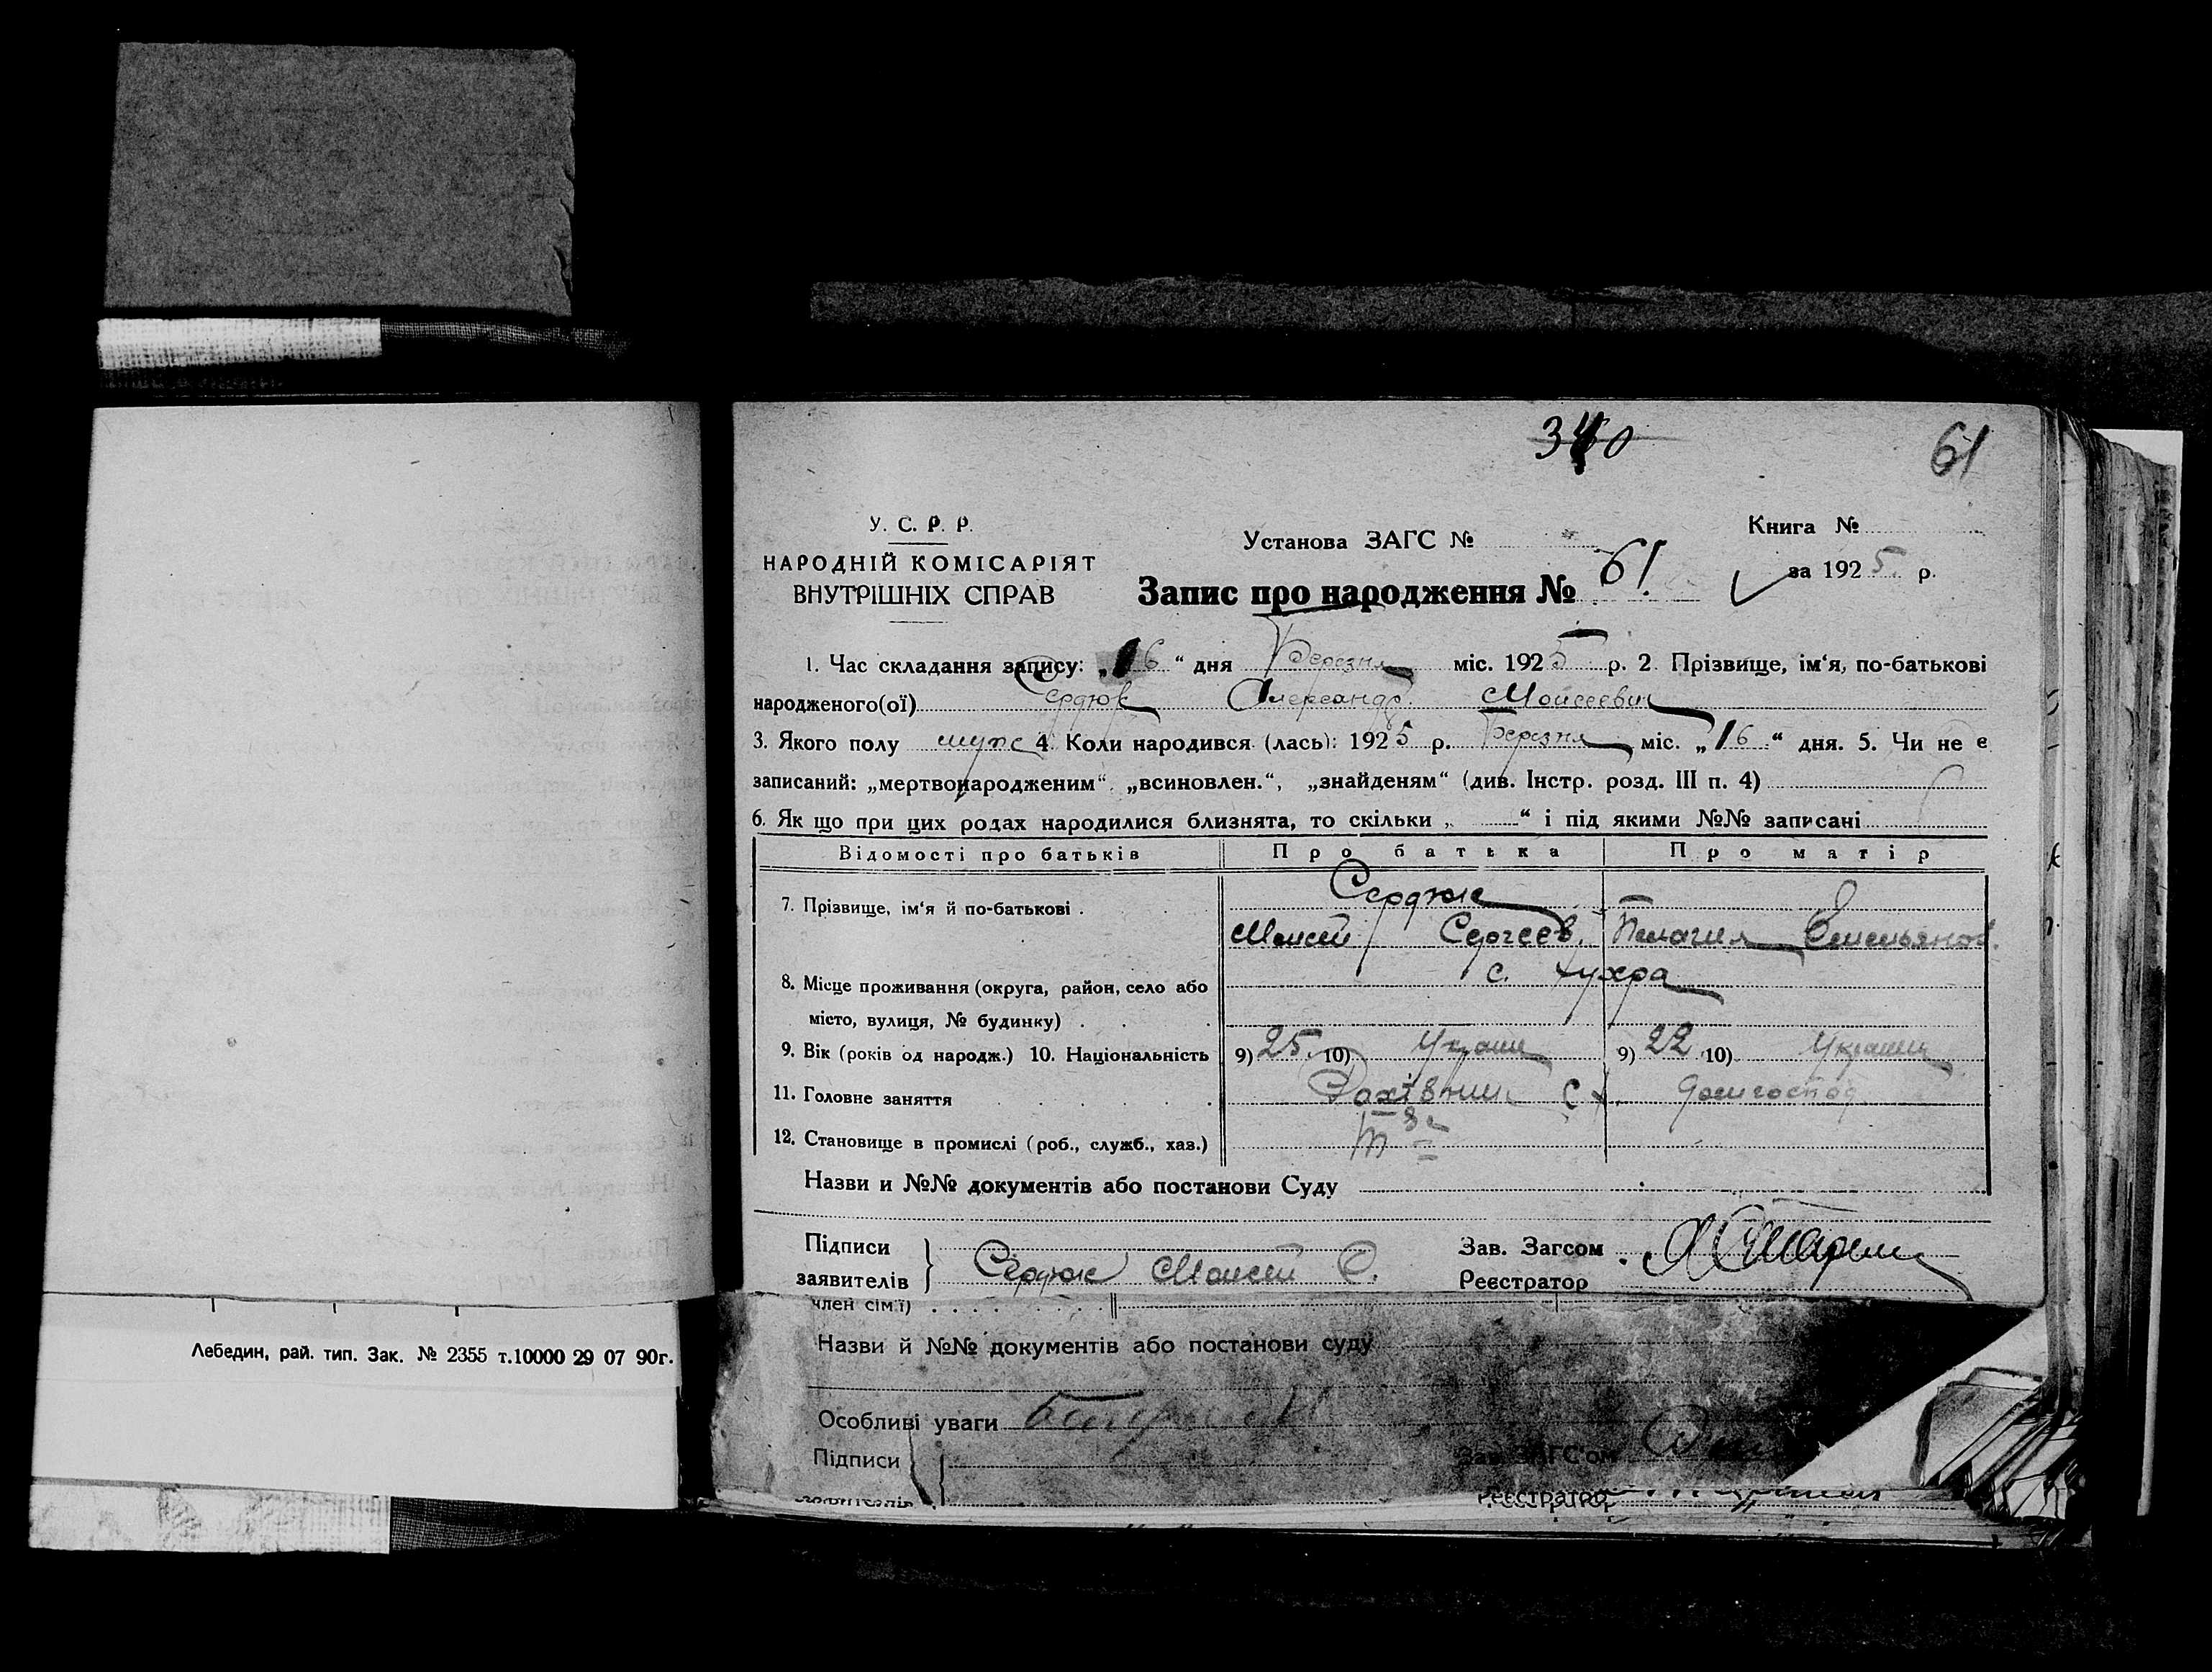 340
61
У. С. Р. Р.
НАРОДНІЙ КОМІСАРІЯТ
ВНУТРІШНІХ СПРАВ
Установа ЗАГС №
Книга №
за 1925 р.
Запис про народження № 61.
1. Час складання запису: „16“ дня Березня міс. 1925 р. 2. Прізвище, ім‘я, по-батькові
народженого(ої) Сердюк Александр Моисеевич
3. Якого полу муж 4. Коли народився (лась): 1925 р. Березня міс. „16“ дня. 5. Чи не є
записаний: „мертвонародженим“, „всиновлен.“, „знайденям“ (див. Інстр. розд. III п. 4)
6. Як що при цих родах народилися близнята, то скільки „ “ і під якими №№ записані
Відомості про батьків Про батька Про матір
7. Прізвище, ім‘я й по-батькові . Сердюк
Моисей Сергеев. Пелагия Емельянов.
8. Місце проживання (округа, район, село або с. Хухра
місто, вулиця, № будинку) .
9. Вік (років од народж.) 10. Національність 9) 25. 10) Украин 9) 22 10) Украин
11. Головне заняття Домгоспод
12. Становище в промислі (роб., служб., хаз.)
Назви и №№ документів або постанови Суду
Підписи
заявителів } Сердюк Моисей С.
Зав. Загсом
Реєстратор
член сім‘ї)
Назви й №№ документів або постанови суду
Особливі уваги
Підписи
Зав. ЗАГС‘ом
заявителів
Реєстратор
Лебедин, рай. тип. Зак. № 2355 т.10000 29 07 90г.